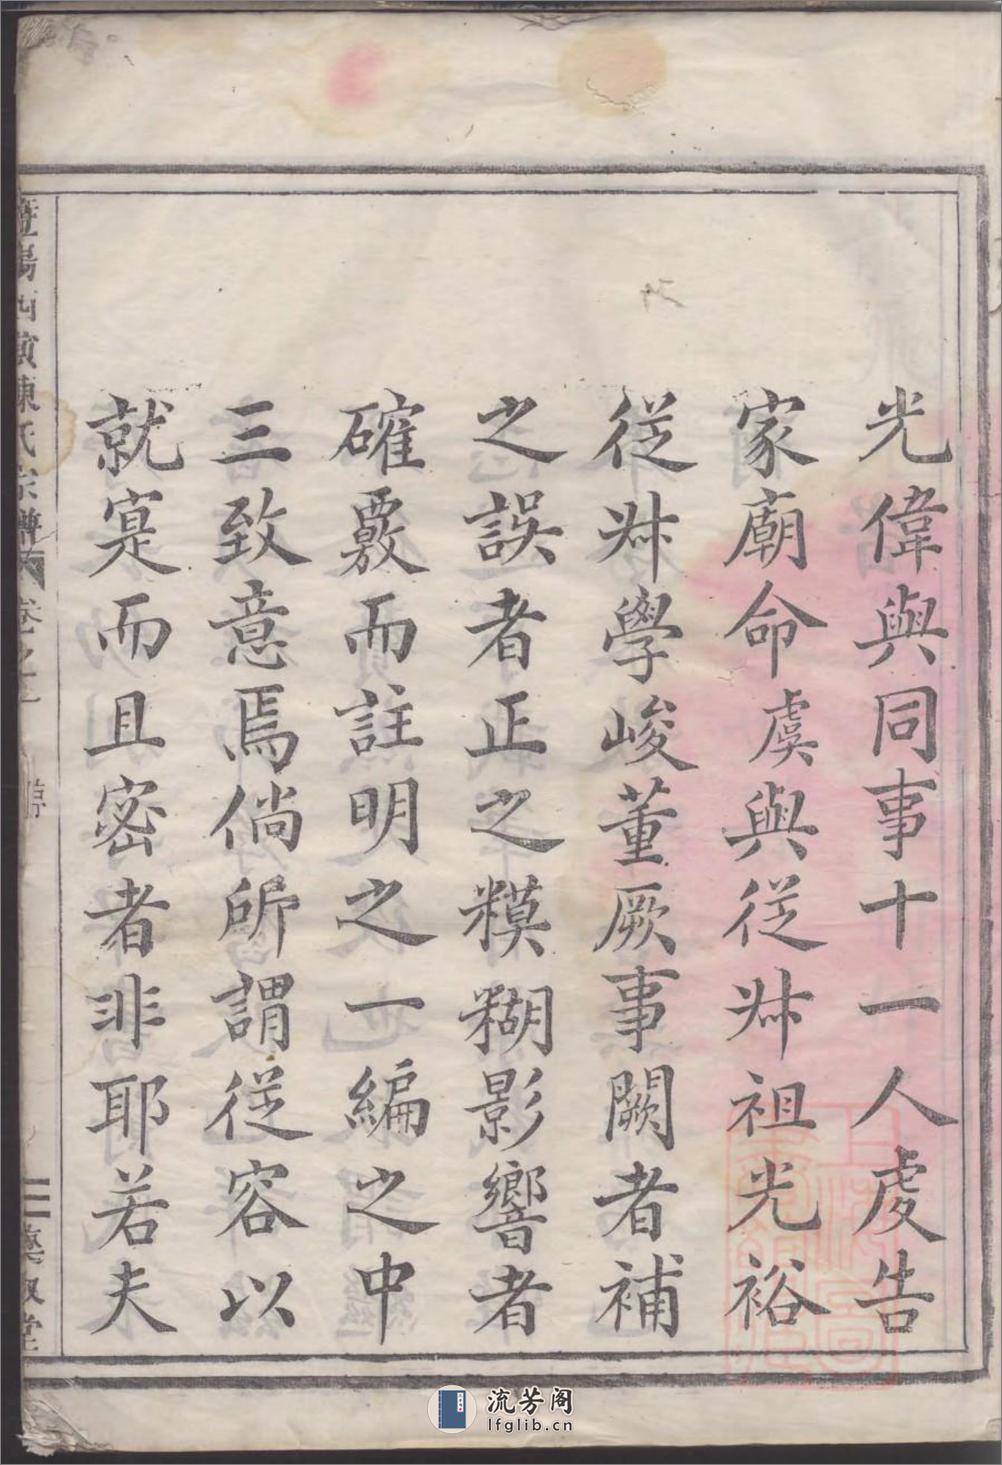 光偉與同事十一人虔告
家廟命虞與從叔祖光裕
從叔學峻董厥事闕者補
之誤者正之糢糊影響者
確覈而註明之一編之中
三致意焉倘所謂從容以
就寔而且密者非耶若夫
陳氏宗譜 卷之
流芳阁
lfglib.cn